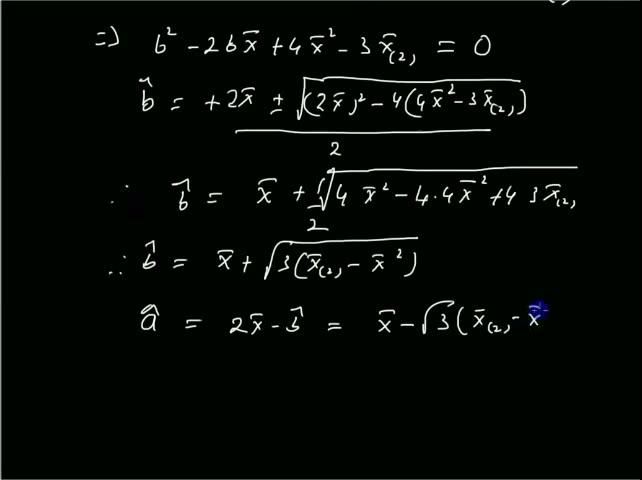 =) b² - 2bx̄ + 4x̄² - 3x̄₍₂₎ = 0
b̂ = +2x̄ ± √((2x̄)² - 4(4x̄² - 3x̄₍₂₎)
2
∴ b̂ = x̄ + 1/2 √4 x̄² - 4·4x̄² + 4 3x̄₍₂₎
∴ b̂ = x̄ + √3(x̄₍₂₎ - x̄²)
â = 2x̄ - b̂ = x̄ - √3(x̄₍₂₎ - x̄